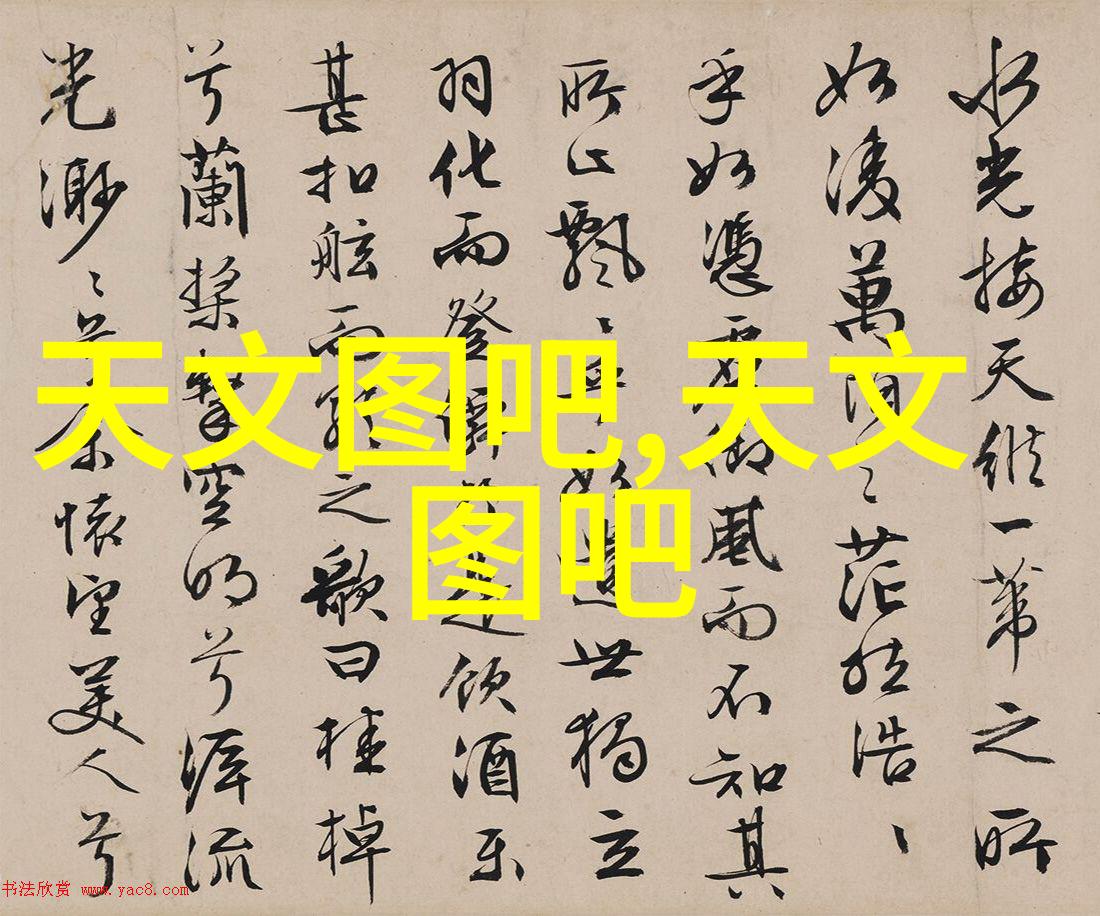 水光接天縱一葦之所
如淩萬頃之茫然浩〻
乎如憑虛御風而不知其
所止飄〻乎如遺世獨立
羽化而登僊於是飲酒樂
甚扣舷而歌之歌曰桂棹
兮蘭槳擊空明兮泝流
光渺〻兮余懷望美人兮
天文图吧,天文
图吧
书法欣赏 www.yac8.com